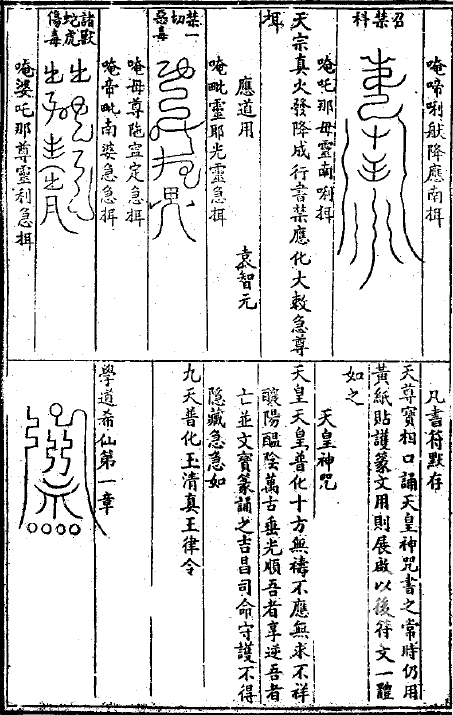 唵啼唎㪇降應南揖
召禁科
唵吒那毋靈南唎揖
天宗真火發降成行書禁應化大敕急尊
揖
應道用　袁智元
唵毗靈耶光靈急揖
禁一切惡毒
唵毋尊陁宣定急揖
唵啼毗南婆急急揖
諸獸蛇虎傷毒
唵婆吒那尊靈利急揖
凡書符默存
天尊寶相口誦天皇神咒書之當時仍用
黃紙貼護篆文用則展啟以後符文一體
如之
天皇神咒
天皇天皇普化十方無禱不應無求不祥
釀陽醖陰萬古垂光順吾者享逆吾者
亡並文寶篆誦之吉昌司命守護不得
隱藏急急如
九天普化玉清真王律令
學道希仙第一章